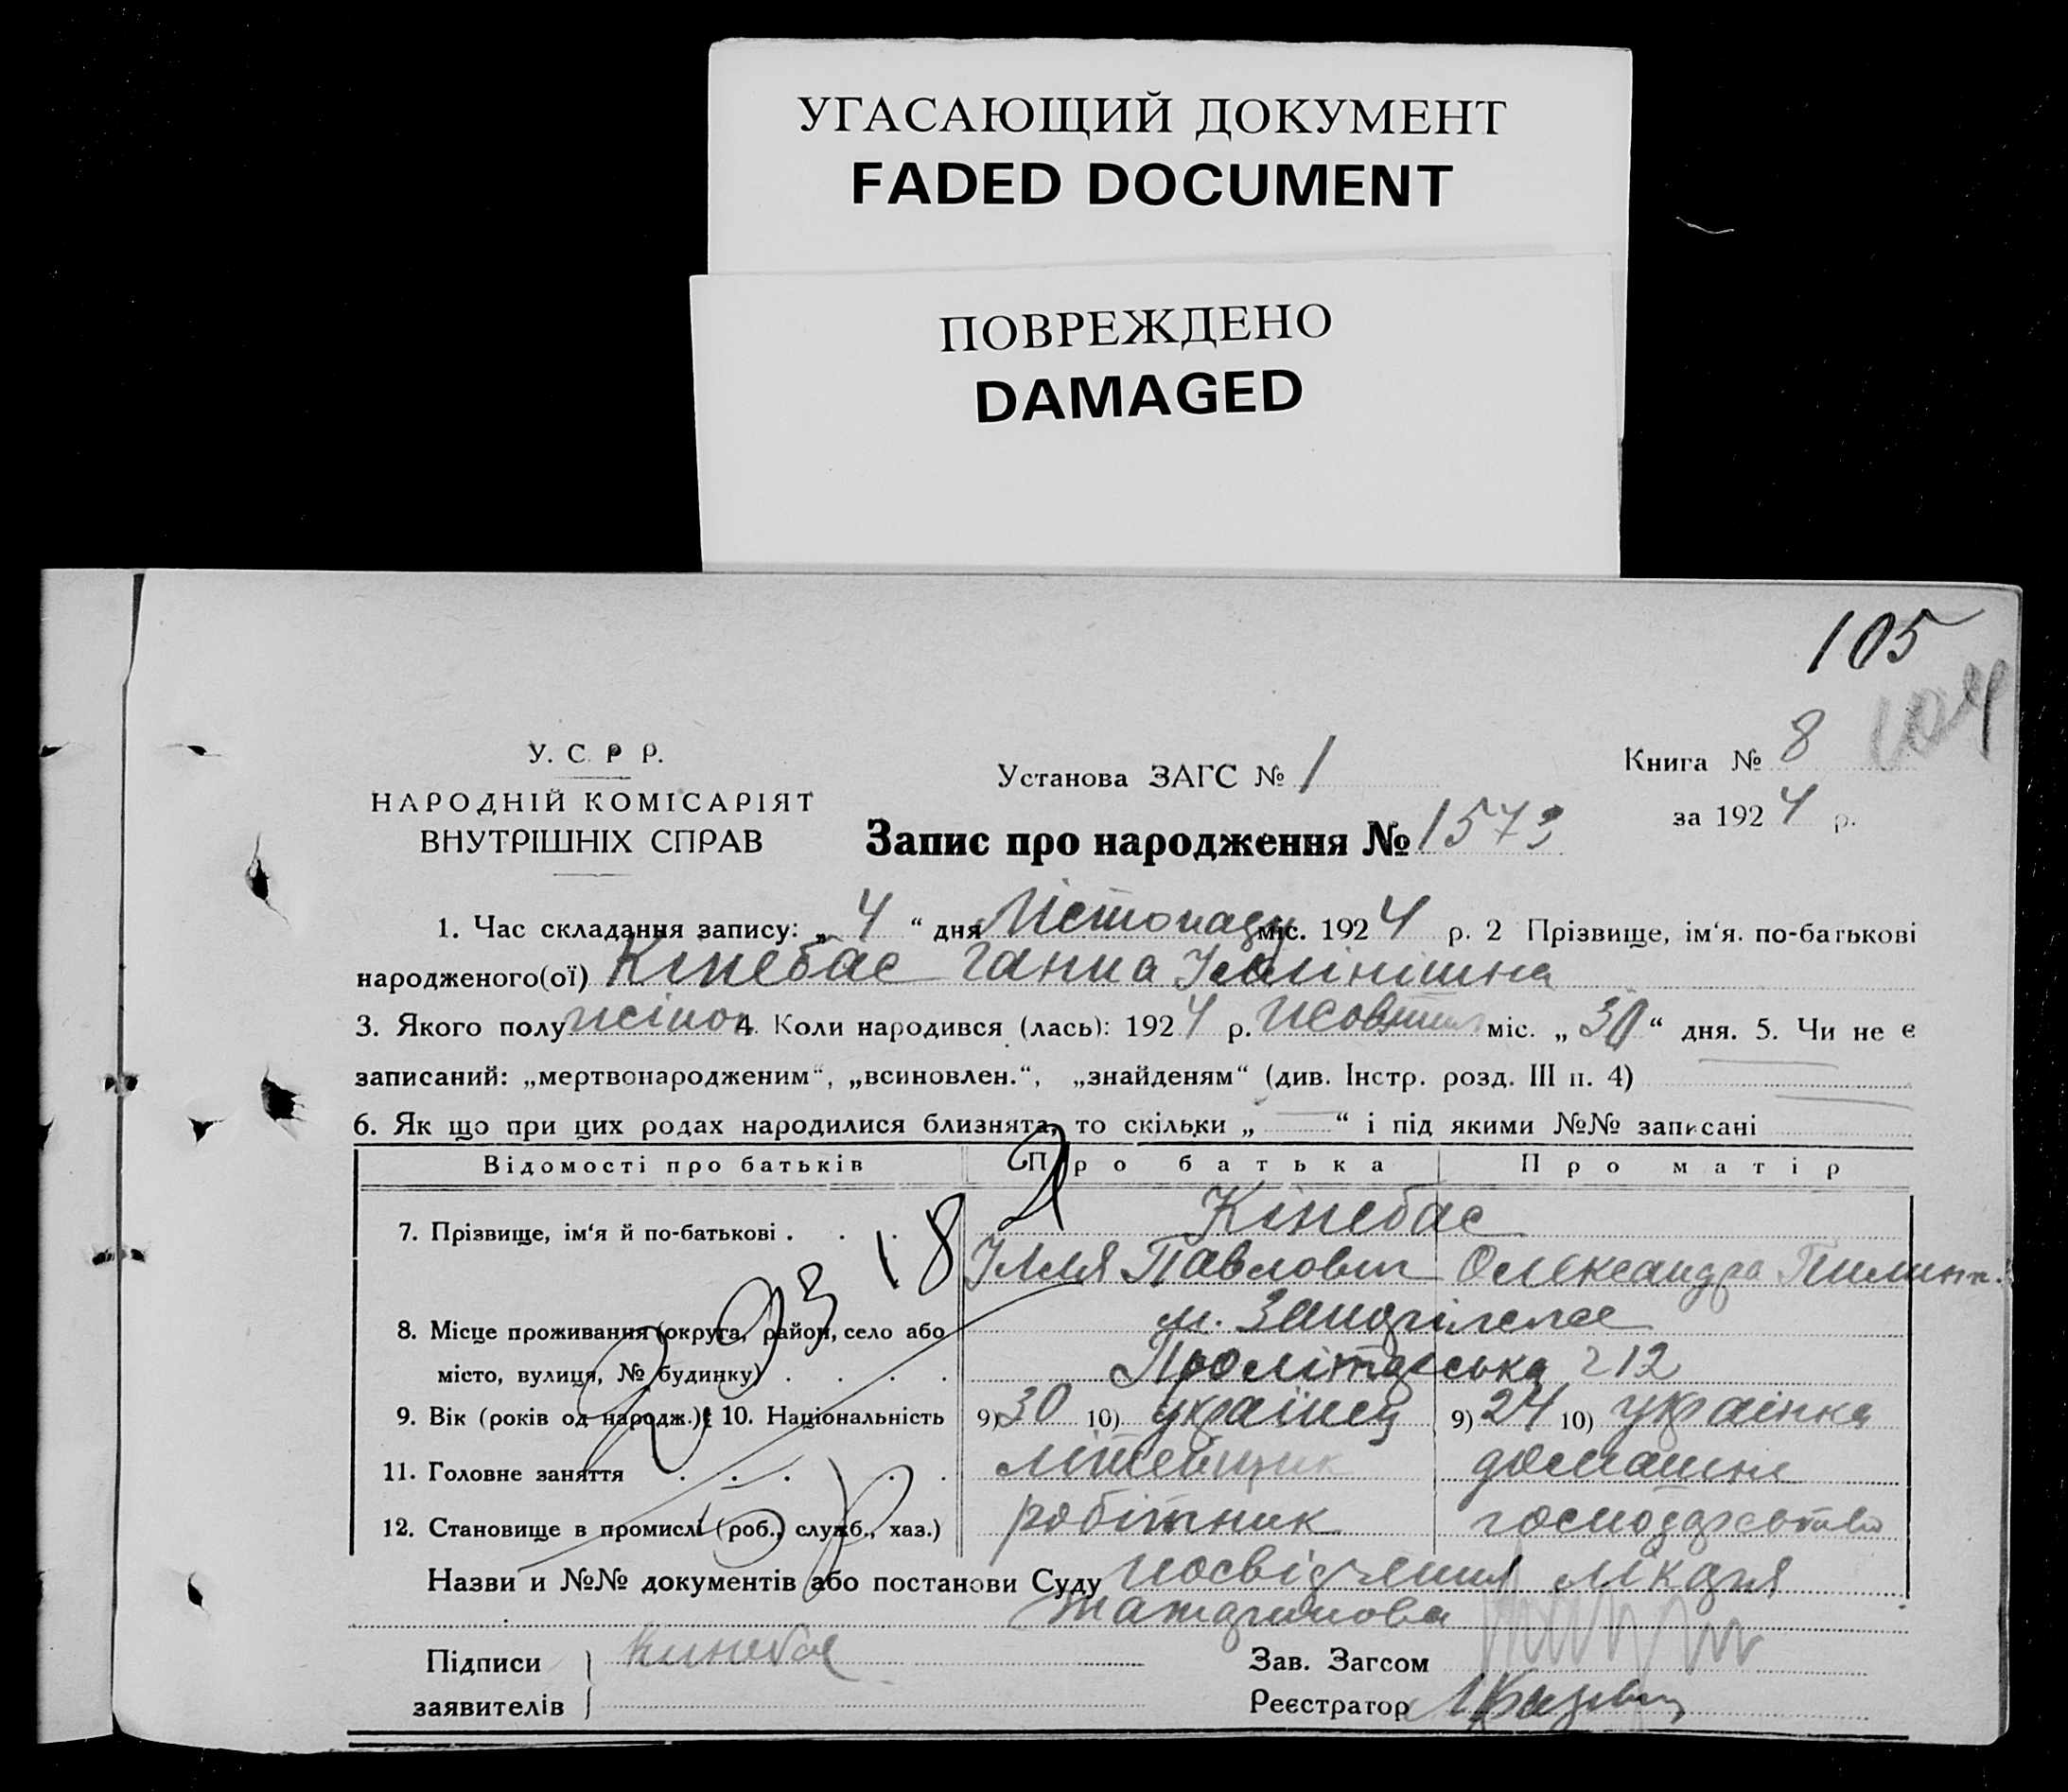 УГАСАЮЩИЙ ДОКУМЕНТ
FADED DOCUMENT
ПОВРЕЖДЕНО
DAMAGED
105
104
У. С. Р Р.
НАРОДНІЙ КОМІСАРІЯТ
ВНУТРІШНІХ СПРАВ
Установа ЗАГС № 1
Книга № 8
за 1924 р.
Запис про народження № 1573
1. Час складання запису: „ 4 “ дня Лістопаду міс. 1924 р. 2 Прізвище, ім‘я. по-батькові
народженого(ої) Кінебас Ганна
3. Якого полу жіноч 4. Коли народився (лась): 1924 р. Жовтня міс. „ 30 “ дня. 5. Чи не є
записаний: „мертвонародженим“, „всиновлен.“, „знайденям“ (див. Інстр. розд. III п. 4)
6. Як що при цих родах народилися близнята, то скільки „ — “ і під якими №№ записані
Відомості про батьків Про батька Про матір
7. Прізвище, ім‘я й по-батькові . . . Кінебас
Ілля Павлович Олександра
8. Місце проживання (округа, район, село або м.
місто, вулиця, № будинку) . . . . Пролітарська 12
9. Вік (років од народж.) 10. Національність 9) 30 10) українец 9) 24 10) українка
11. Головне заняття . . . . . літейщик домашнє
12. Становище в промислі (роб., служб., хаз.) робітник господарство
Назви и №№ документів або постанови Суду посвідчення лікаря
Підписи Кинебас Зав. Загсом
заявителів Реєстратор